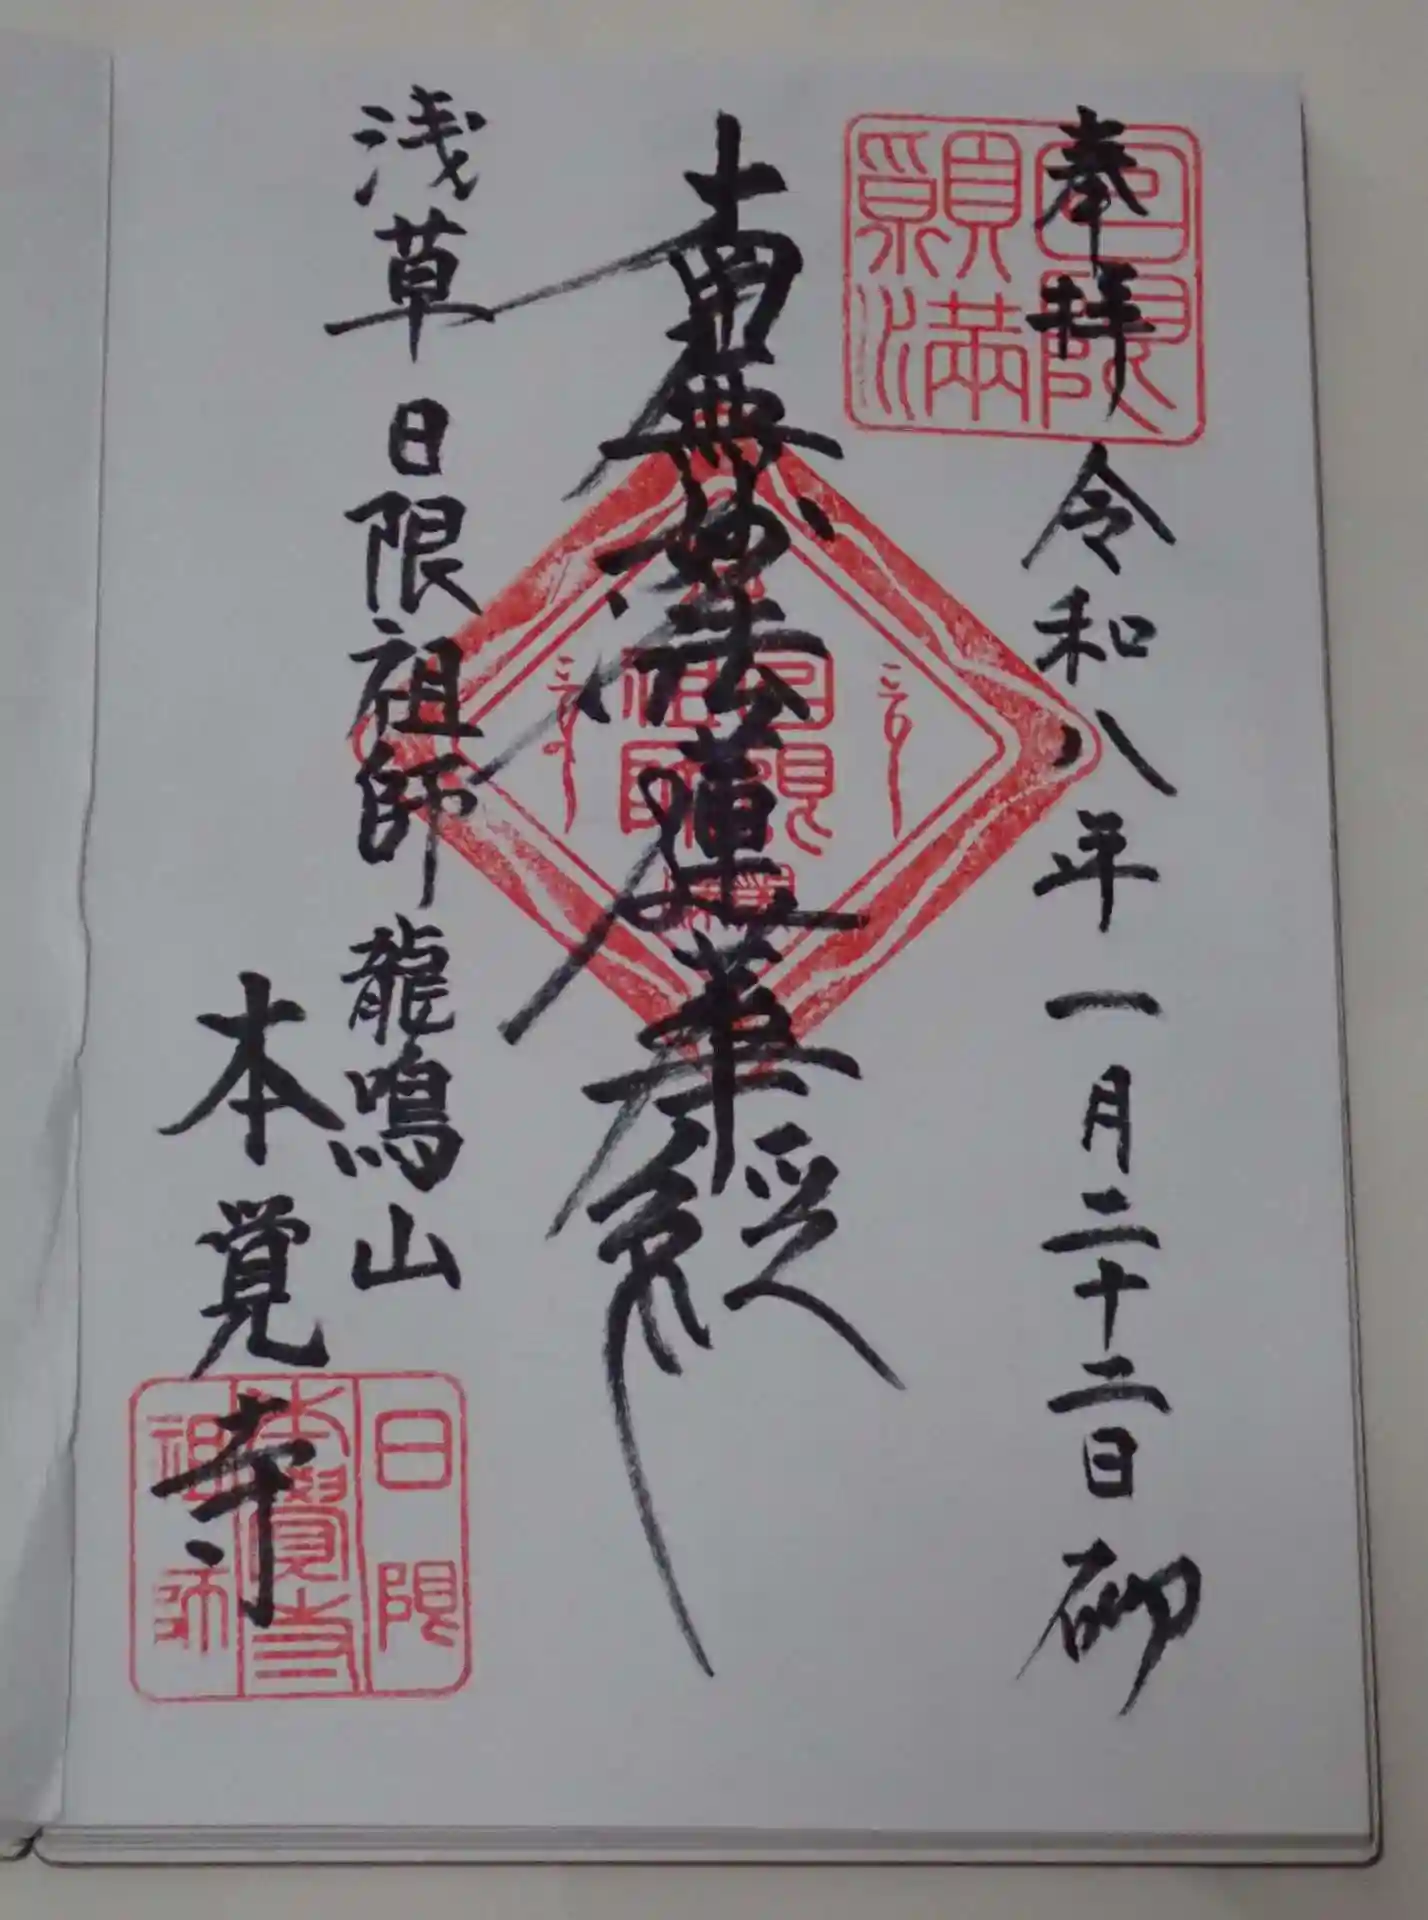 奉拝 令和八年一月二十二日
日限
願満
南無妙法蓮華経
日限
祖師
浅草 日限祖師 龍鳴山
本覚寺
日限
本覺寺
祖師